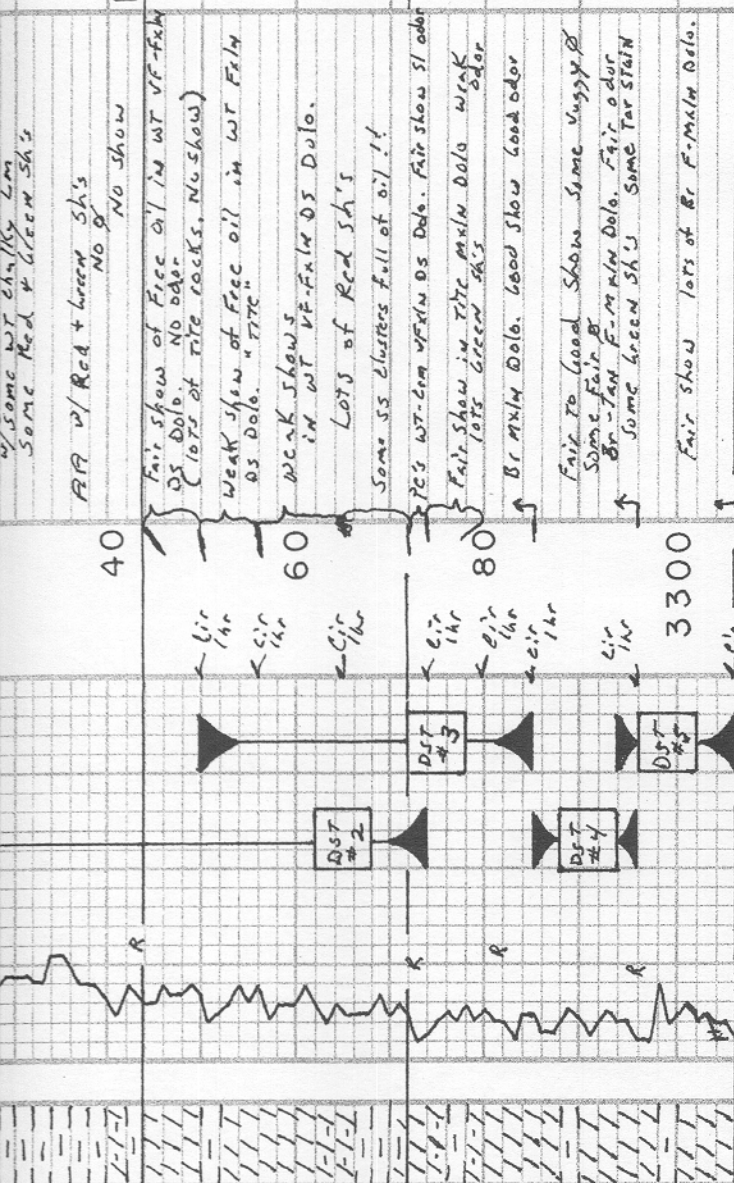 w/ some WT chalky Lm
Some Red & Green Sh's
AA w/ Red + Green Sh's
NO Ø
NO Show
Fair show of Free oil in WT VF-Fxln
DS Dolo. NO odor
(lots of Tite rocks. No show)
Weak show of Free oil in WT Fxln
DS Dolo. "TITE"
Weak shows
in WT VF-Fxln DS Dolo.
Lots of Red Sh's
Some SS clusters full of oil !!
Pc's WT-Crm VFxln DS Dolo. Fair show Sl odor
Fair show in Tite Mxln Dolo weak odor
lots Green Sh's
Br Mxln Dolo. Good Show Good odor
Fair to Good Show Some Vuggy Ø
Some Fair Ø
Br-Tan F-Mxln Dolo. Fair odor
Some Green Sh's Some Tar Stain
Fair show lots of Br F-Mxln Dolo.
40
60
80
3300
Cir
1hr
Cir
1hr
Cir
1hr
Cir
1hr
Cir
1hr
Cir
1hr
Cir
1hr
DST
#3
DST
#5
DST
#2
DST
#4
R
R
R
R